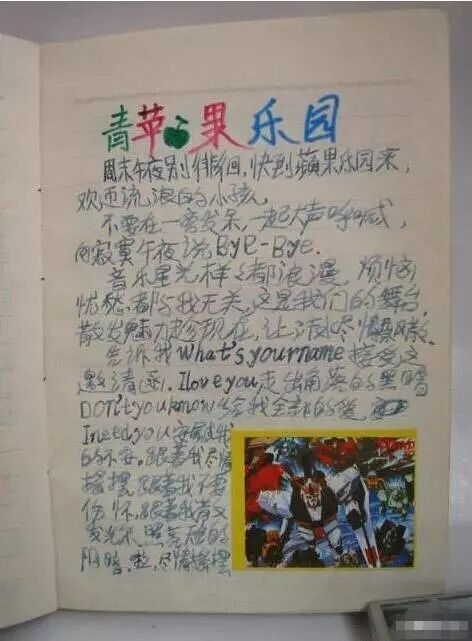 青苹果乐园
周末午夜别徘徊,快到蘋果乐园来,
欢迎流浪的小孩,
不要在一旁发呆,一起大声呼喊,
向寂寞午夜说Bye-Bye.
音乐星光样样都浪漫,烦恼
忧愁都与我无关,这是我们的舞台,
散发魅力趁现在,让汗水尽情
告诉我what's your name接受这
邀请函.I love you走出角落的黑暗
DON't you know给我全部的
I need you安慰我
的不安,跟着我尽情
摇摆,跟着我不要
伤怀,跟着我
照亮你的
阴暗.啦,尽情摇摆